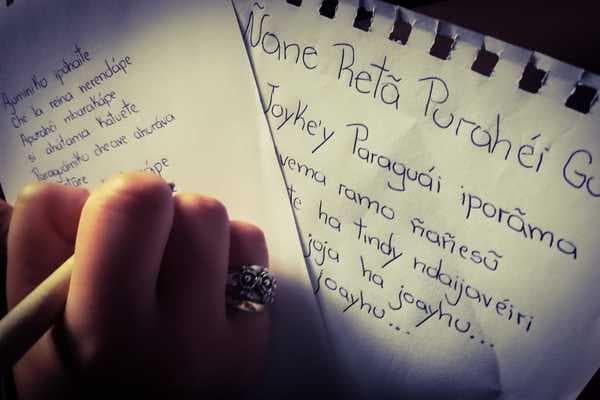 Aguintko ipohaite
Che la reina nerendápe
Apurahéi mbarakápe
si ahótama katuete
Paraguáiniko che ave ahoráva
ápe
Ñane Retã Purahéi Gu
Joyke'y Paraguái iporãma
vema ramo ñañesũ
te ha tindy ndaijavéiri
joja ha joayhu...
joayhu...